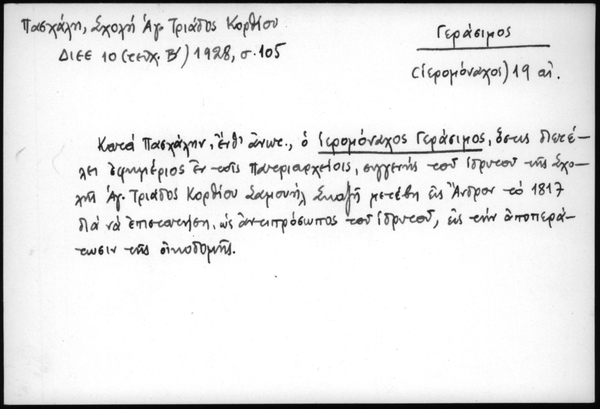 Πασχάλη, Σχολή Ἁγ. Τριάδος Κορθίου
ΔΙΕΕ 10 (τεῦχ. Β΄) 1928, σ. 105
Γεράσιμος
(ἱερομόναχος) 19 αἰ.
Κατά Πασχάλην, ἔνθ' ἄνωτ., ὁ ἱερομόναχος Γεράσιμος, ὅστις διετέ-
λει ἐφημέριος ἐν τοῖς Πατριαρχείοις, συγγενής τοῦ ἱδρυτοῦ τῆς Σχο-
λῆς Ἁγ. Τριάδος Κορθίου Σαμουήλ μετέβη εἰς Ἄνδρον τό 1817
διά νά ἐπιστατήσῃ, ὡς ἀντιπρόσωπος τοῦ ἱδρυτοῦ, εἰς τήν ἀποπερά-
τωσιν τῆς οἰκοδομῆς.